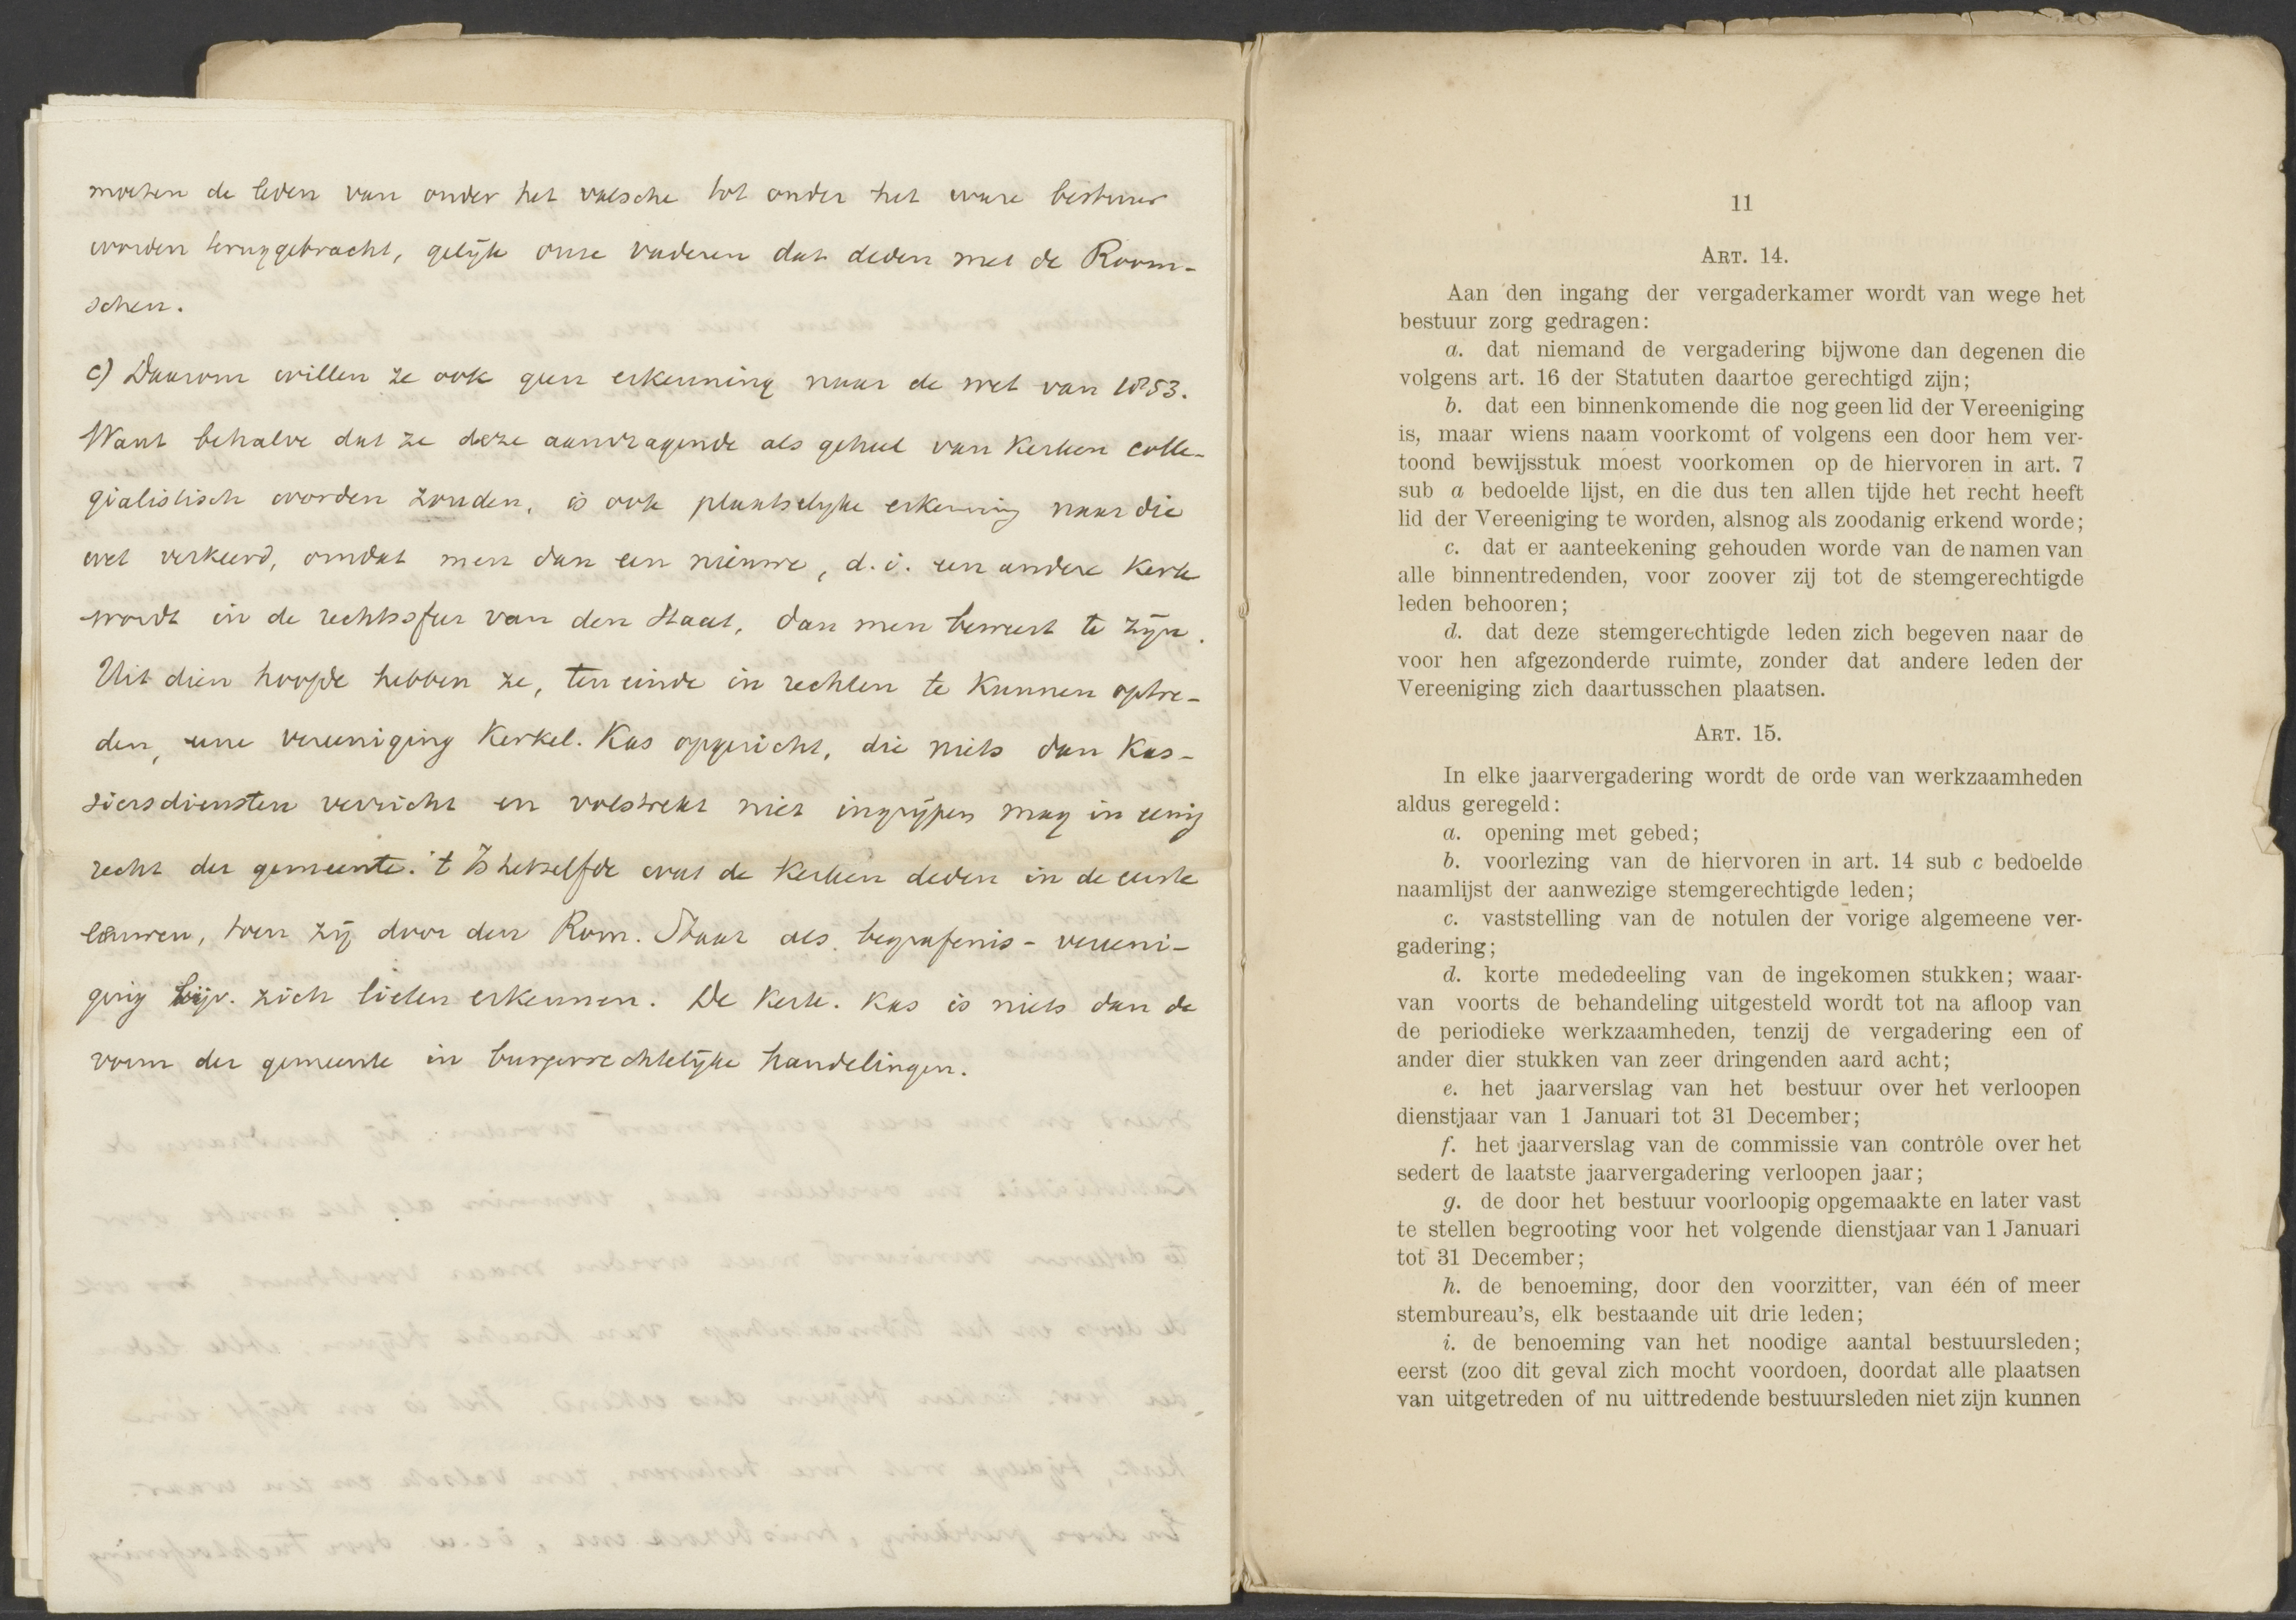 moeten de leden van onder het valsche tot onder het ware bestuur
worden teruggebracht, gelijk onze vaderen dat deden met de Room-
schen.
c) Daarom willen ze ook geen erkenning naar de wet van 1853.
Want behalve dat ze deze aanvragende als geheel van Kerken colle-
gialistisch worden zouden, is ook plaatselyke erkenning naar die
wet verkeerd, omdat men dan een nieuwe, d.i. een andere Kerk
wordt in de rechtssfeer van den Staat, dan men beweert te zijn.
Uit dien hoofde hebben ze, ten einde in rechten te kunnen optre-
den, eene vereeniging Kerkel. Kas opgericht, die niets dan Kas-
siersdiensten verricht en volstrekt niet ingrijpen mag in eenig
recht der gemeente. 't Is hetzelfde wat de Kerken deden in de eerste
eeuwen, toen zij door den Rom. Staat als begrafenis-vereeni-
ging bijv. zich lieten erkennen. De Kerk. Kas is niets dan de
vorm der gemeente in burgerrechtelijke handelingen.
11
ART. 14.
Aan den ingang der vergaderkamer wordt van wege het
bestuur zorg gedragen:
a. dat niemand de vergadering bijwone dan degenen die
volgens art. 16 der Statuten daartoe gerechtigd zijn;
b. dat een binnenkomende die nog geen lid der Vereeniging
is, maar wiens naam voorkomt of volgens een door hem ver-
toond bewijsstuk moest voorkomen op de hiervoren in art. 7
sub a bedoelde lijst, en die dus ten allen tijde het recht heeft
lid der Vereeniging te worden, alsnog als zoodanig erkend worde;
c. dat er aanteekening gehouden worde van de namen van
alle binnentredenden, voor zoover zij tot de stemgerechtigde
leden behooren;
d. dat deze stemgerechtigde leden zich begeven naar de
voor hen afgezonderde ruimte, zonder dat andere leden der
Vereeniging zich daartusschen plaatsen.
ART. 15.
In elke jaarvergadering wordt de orde van werkzaamheden
aldus geregeld:
a. opening met gebed;
b. voorlezing van de hiervoren in art. 14 sub c bedoelde
naamlijst der aanwezige stemgerechtigde leden;
c. vaststelling van de notulen der vorige algemeene ver-
gadering;
d. korte mededeeling van de ingekomen stukken; waar-
van voorts de behandeling uitgesteld wordt tot na afloop van
de periodieke werkzaamheden, tenzij de vergadering een of
ander dier stukken van zeer dringenden aard acht;
e. het jaarverslag van het bestuur over het verloopen
dienstjaar van 1 Januari tot 31 December;
f. het jaarverslag van de commissie van contrôle over het
sedert de laatste jaarvergadering verloopen jaar;
g. de door het bestuur voorloopig opgemaakte en later vast
te stellen begrooting voor het volgende dienstjaar van 1 Januari
tot 31 December;
h. de benoeming, door den voorzitter, van één of meer
stembureau's, elk bestaande uit drie leden;
i. de benoeming van het noodige aantal bestuursleden;
eerst (zoo dit geval zich mocht voordoen, doordat alle plaatsen
van uitgetreden of nu uittredende bestuursleden niet zijn kunnen